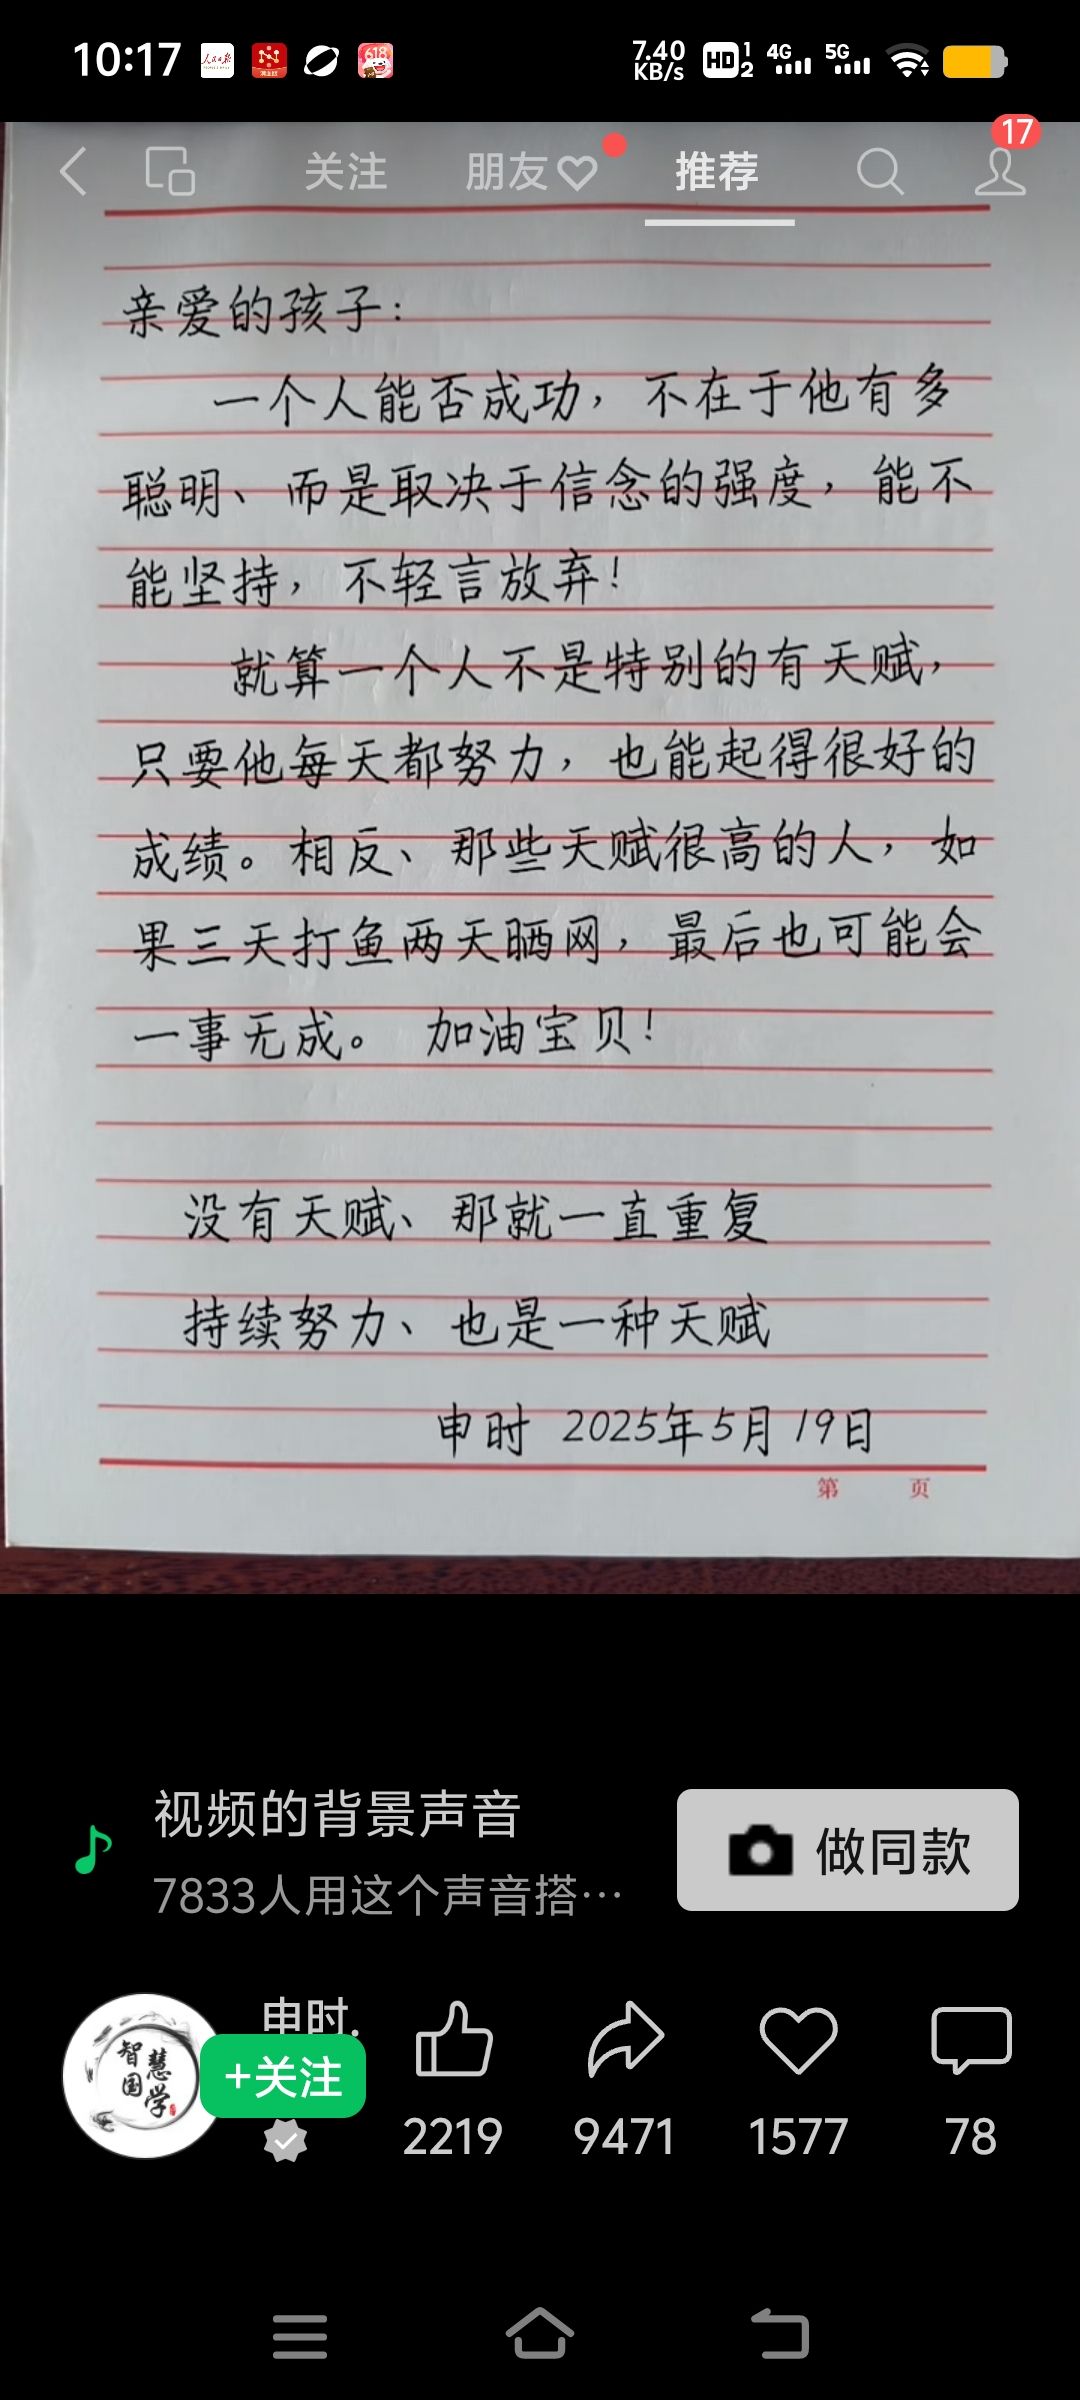 10:17
7.40 KB/s HD 1 2 4G 5G
618
17
关注 朋友 推荐
亲爱的孩子:
一个人能否成功，不在于他有多
聪明、而是取决于信念的强度，能不
能坚持，不轻言放弃!
就算一个人不是特别的有天赋，
只要他每天都努力，也能起得很好的
成绩。相反、那些天赋很高的人，如
果三天打鱼两天晒网，最后也可能会
一事无成。 加油宝贝!
没有天赋、那就一直重复
持续努力、也是一种天赋
申时 2025年5月19日
第 页
视频的背景声音
7833人用这个声音搭…
做同款
智慧国学
申时.
+关注
2219 9471 1577 78